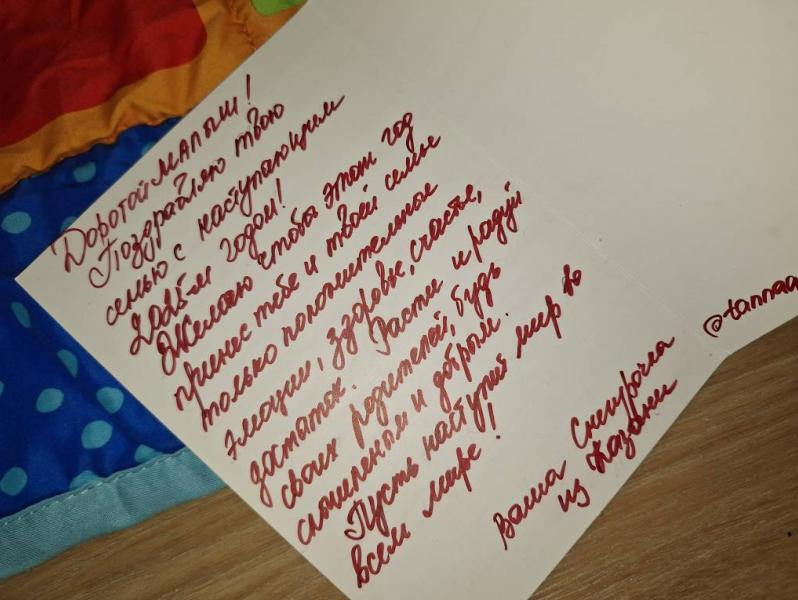 Дорогой малыш!
Поздравляю твою
семью с наступающим
2025-м годом!
Желаю чтобы этот год
принес тебе и твоей семье
только положительные
эмоции, здоровье, счастье,
достаток. Расти и радуй
своих родителей, будь
смышленым и добрым.
Пусть наступит мир во
всем мире!
Ваша Снегурочка
из Казани
@tannaa